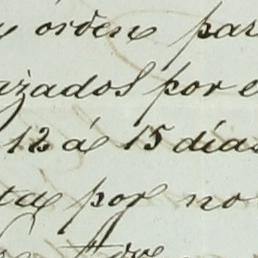 y órden par
azados por e
12 á 15 dias
ta por no